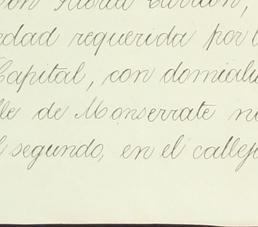 on Gloria Carrión,
edad requerida por l
Capital, con domicili
lle de Monserrate n
l segundo, en el callej